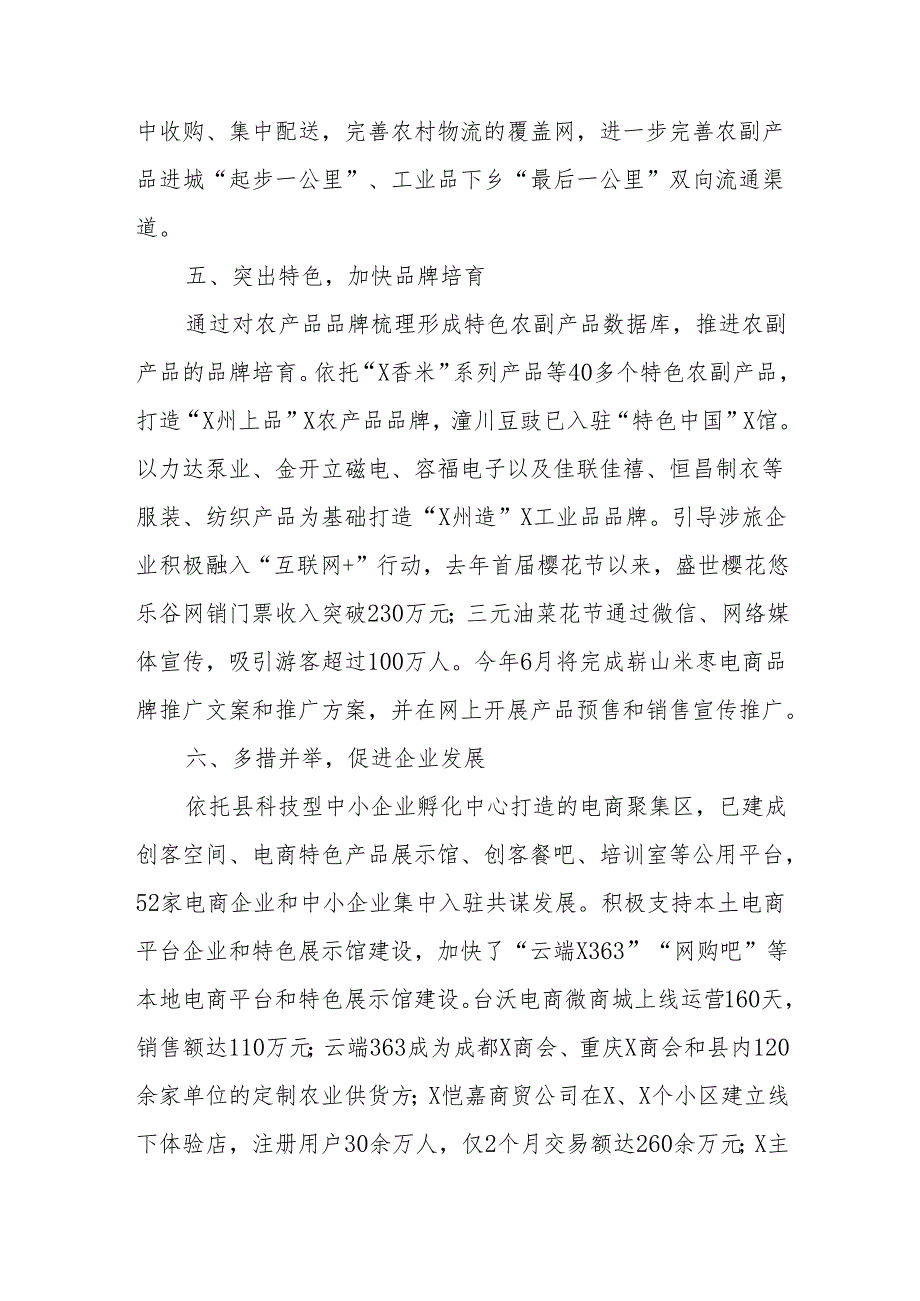 中收购、集中配送，完善农村物流的覆盖网，进一步完善农副产
品进城“起步一公里”、工业品下乡“最后一公里”双向流通渠
道。
五、突出特色，加快品牌培育
通过对农产品品牌梳理形成特色农副产品数据库，推进农副
产品的品牌培育。依托“X香米”系列产品等40多个特色农副产品，
打造“X州上品”X农产品品牌，潼川豆豉已入驻“特色中国”X馆。
以力达泵业、金开立磁电、容福电子以及佳联佳禧、恒昌制衣等
服装、纺织产品为基础打造“X州造”X工业品品牌。引导涉旅企
业积极融入“互联网+”行动，去年首届樱花节以来，盛世樱花悠
乐谷网销门票收入突破230万元；三元油菜花节通过微信、网络媒
体宣传，吸引游客超过100万人。今年6月将完成崭山米枣电商品
牌推广文案和推广方案，并在网上开展产品预售和销售宣传推广。
六、多措并举，促进企业发展
依托县科技型中小企业孵化中心打造的电商聚集区，已建成
创客空间、电商特色产品展示馆、创客餐吧、培训室等公用平台，
52家电商企业和中小企业集中入驻共谋发展。积极支持本土电商
平台企业和特色展示馆建设，加快了“云端X363”“网购吧”等
本地电商平台和特色展示馆建设。台沃电商微商城上线运营160天，
销售额达110万元；云端363成为成都X商会、重庆X商会和县内120
余家单位的定制农业供货方；X恺嘉商贸公司在X、X个小区建立线
下体验店，注册用户30余万人，仅2个月交易额达260余万元；X主